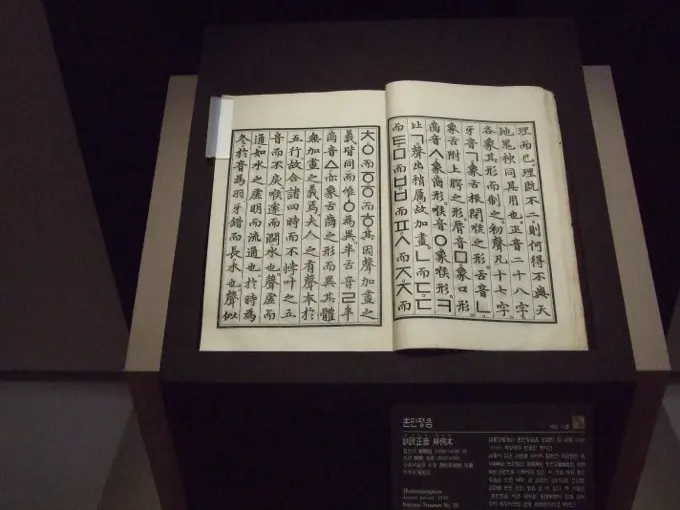 理而已.理旣不二.則何得不與天
地鬼神同其用也.正音二十八字.
各象其形而制之.初聲凡十七字.
牙音ㄱ.象舌根閉喉之形.舌音ㄴ.
象舌附上腭之形.脣音ㅁ.象口形.
齒音ㅅ.象齒形.喉音ㅇ.象喉形.ㅋ
比ㄱ.聲出稍厲.故加畫.ㄴ而ㄷ.ㄷ
而ㅌ.ㅁ而ㅂ.ㅂ而ㅍ.ㅅ而ㅈ.ㅈ而
ㅊ.ㅇ而ㆆ.ㆆ而ㅎ.其因聲加畫之
義皆同.而唯ㆁ為異.半舌音ㄹ.半
齒音ㅿ.亦象舌齒之形而異其體.
無加畫之義焉.夫人之有聲本於
五行.故合諸四時而不悖.叶之五
音而不戾.喉邃而潤.水也.聲虛而
通.如水之虛明而流通也.於時為
冬.於音為羽.牙錯而長.木也.聲似
훈민정음
訓民正音 解例本
Hunminjeongeum
National Treasure No. 70